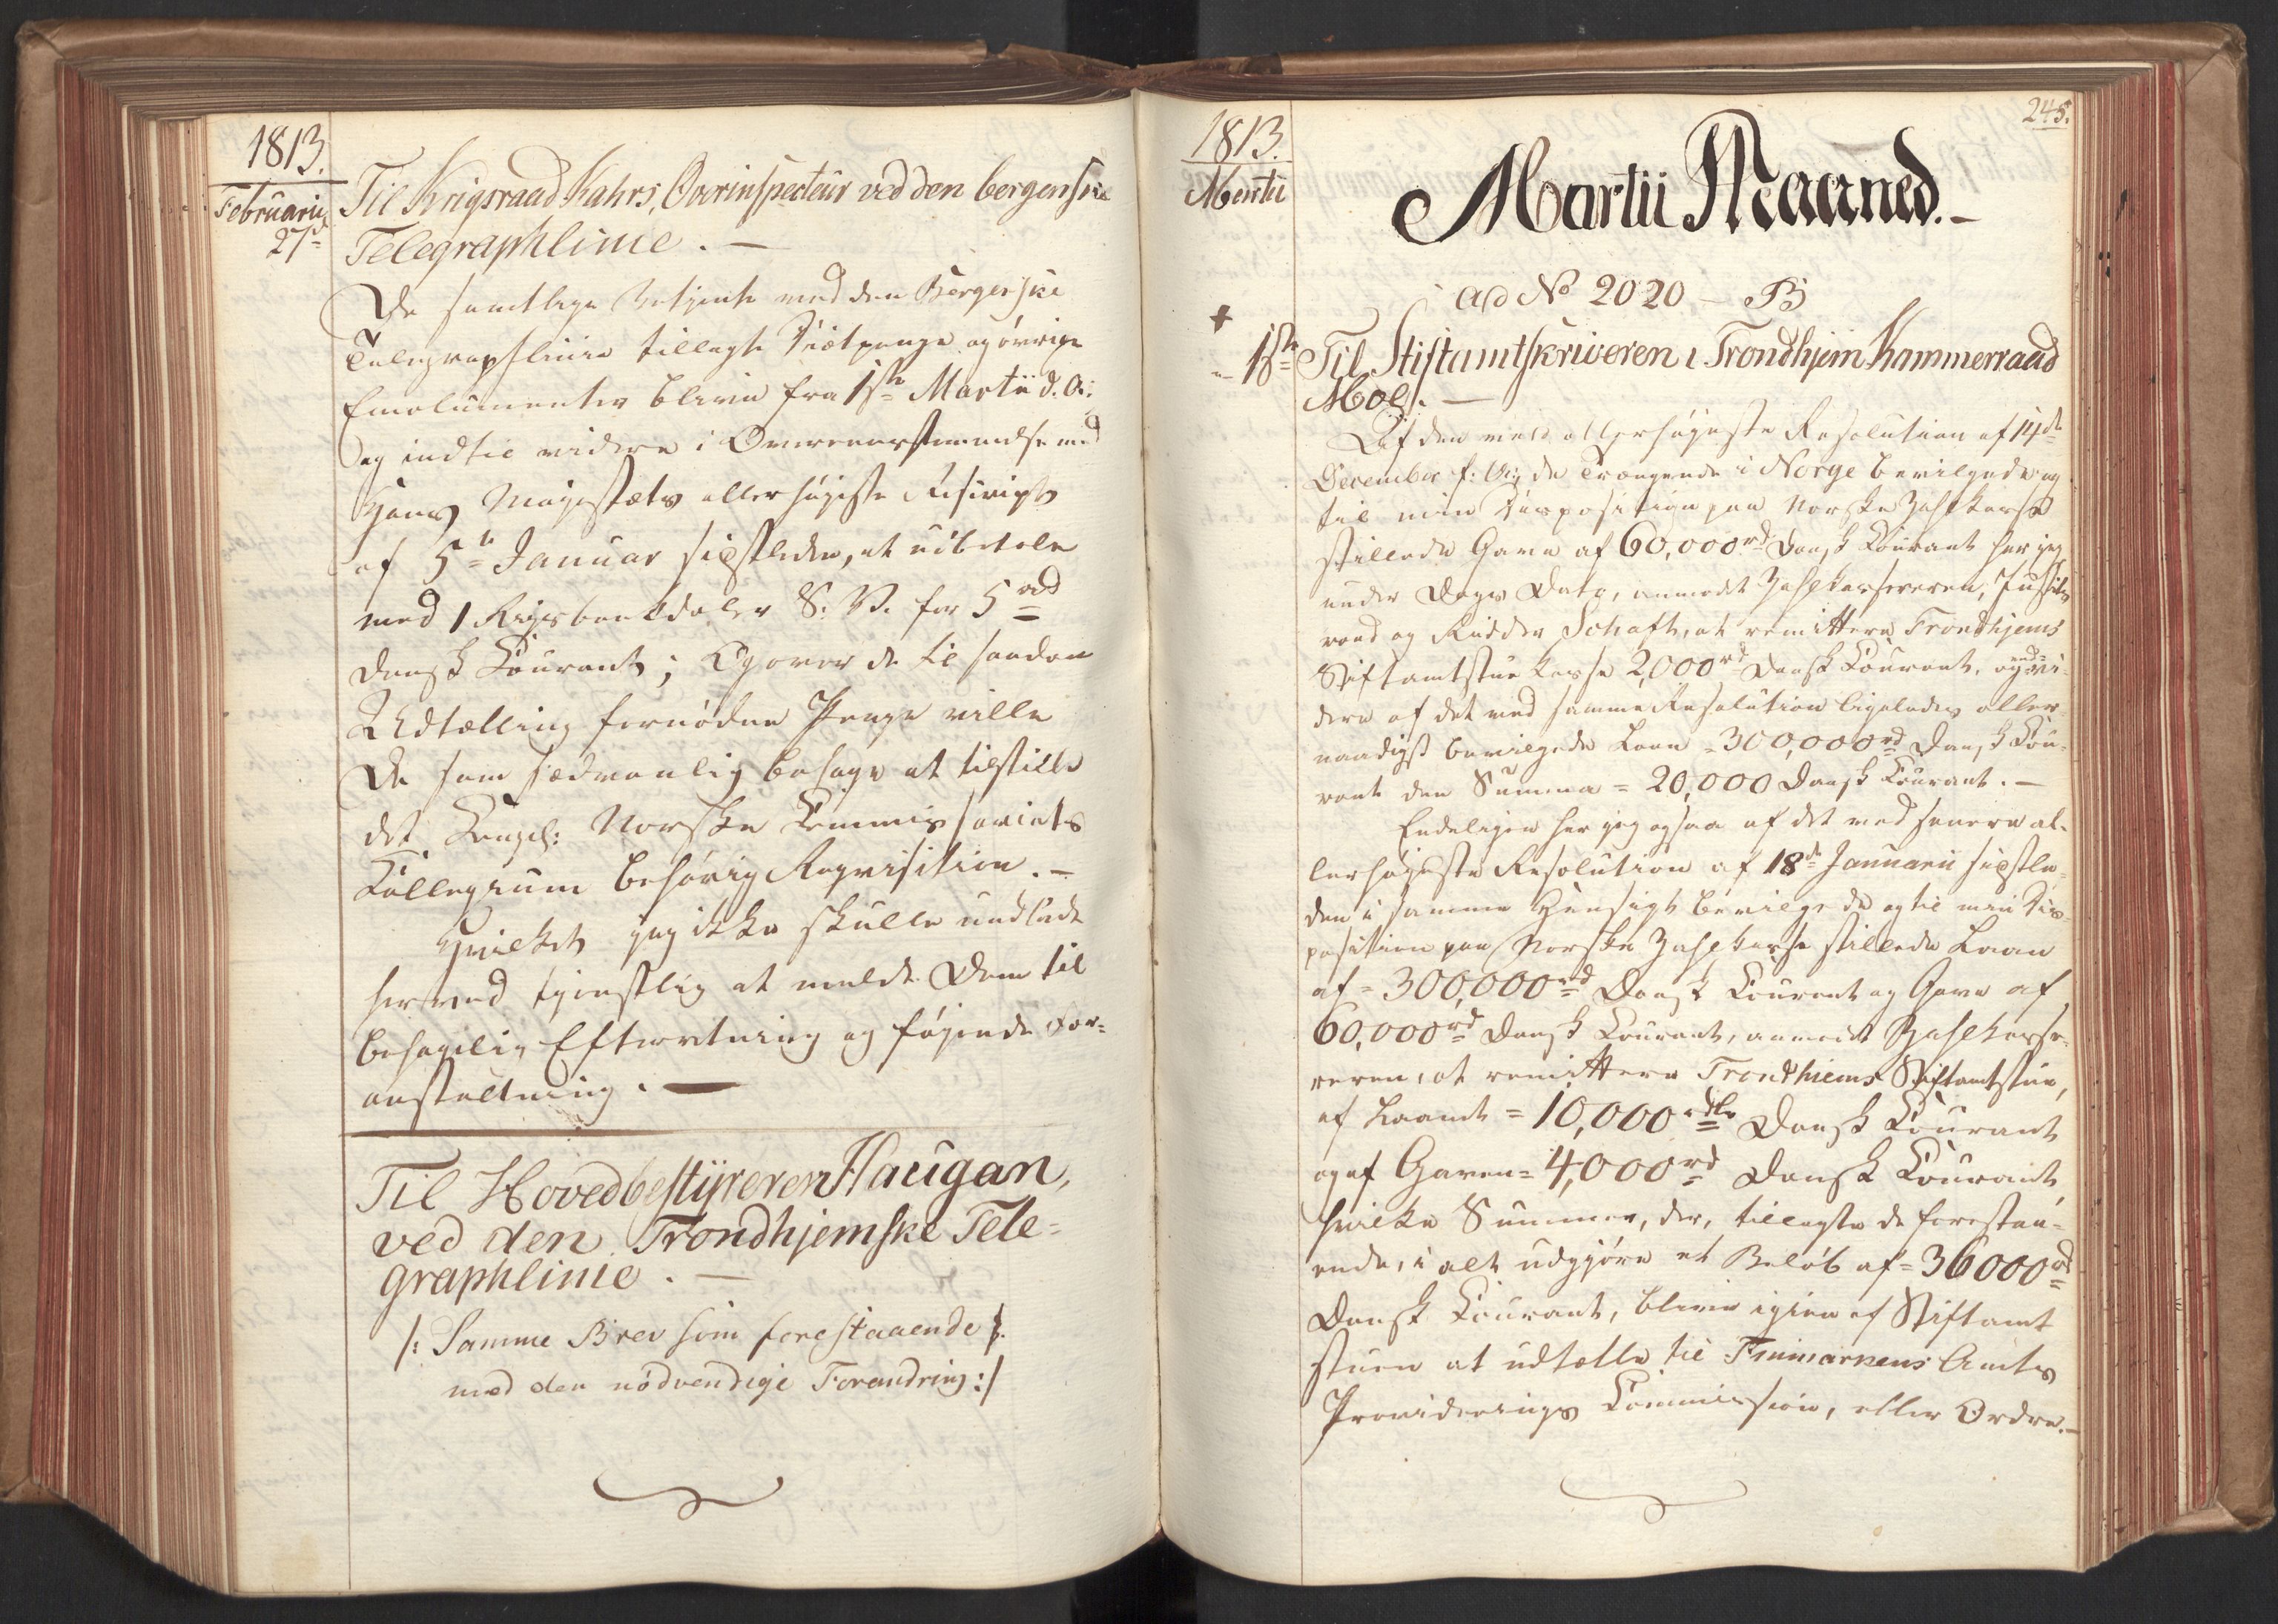 1813.
Februarii
27d
Til Krigsraad Kahrs, Overinspecteur ved den bergenske
Telegraphlinie. —
De samtlige Betjente med den Bergenske
Telegraphlinie tillagte Diætpenge og övrige
Emolumenter blive fra 1ste Martii d. A:
og indtil videre i Overeensstemmelse med
Hans Majestæts allerhöjeste Rescript
af 5te Januar sidstleden, at udbetale
med 1 Rigsbankdaler S. V. for 5 rd
dansk Courant; Ogover de til saadan
Udtælling fornödne Penge ville
De som sædvanlig behage at tilstille
det Kongel: Norske Commissariats
Collegium behörig Reqvisition. —
Hvilket jeg ikke skulle undlade
herved tjenstlig at melde Dem til
behagelig Efterretning og föjende For=
anstaltning. —
Til Hovedbestÿreren Haugan,
ved den Trondhjemske Tele=
graphlinie. —
/: Samme Brev som forestaaende
med den nödvendige Forandring :/
1813.
Martii
245.
Martii Maaned. —
ad No 2020 — B
+
1ste
Til Stiftamtskriveren i Trondhjem Kammerraad
Moe. —
Af den ved allerhöjeste Resolution af 14de
December f: A: de Trængende i Norge bevilgede og
til min Disposition paa Norske Zahlkasse
stillede Gave af 60,000 rd dansk Courant har jeg
under Dags Dato, anmodet Zahlkassereren, Justits
raad og Ridder Schaft, at remittere Trondhjems
Stiftamtstue Kasse 2,000 rd dansk Courant, og end vi-
dere af det ved samme Resolution ligeledes aller-
naadigst bevilgede Laan = 300,000 rd dansk Cou-
rant den Summa = 20,000 dansk Courant. —
Endeligen har jeg ogsaa af det ved senere al-
lerhöjeste Resolution af 18de Januarii sidstle-
den i samme Hensigt bevilgede og til min Dis-
position paa Norske Zahlkasse stillede Laan
af = 300,000 rd Dansk Courant og Gave af
60,000 rd dansk Courant, anmodet Zahlkasse-
reren, at remittere Trondhiems Stiftamtstue,
af Laanet = 10,000 rdlr Dansk Courant
og af Gaven = 4,000 rd Dansk Courant,
hvilke Summer, der, tillagte de forestaa-
ende, i alt udgjöre et Belöb af = 36000 rd
Dansk Courant, blive igien af Stiftamt
stuen at udtælle til Finmarkens Amts
Providerings Commission, eller Ordre. —